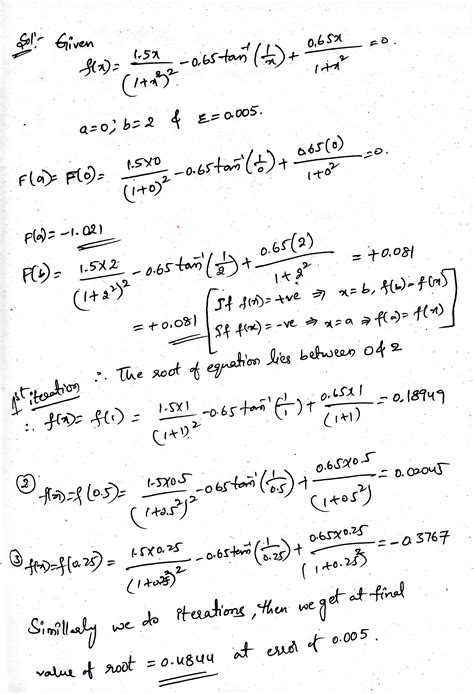 Sol:- Given
f(x) = 1.5x/(1+x²)² - 0.65 tan⁻¹(1/x) + 0.65x/(1+x²) = 0.
a=0; b=2 & ε=0.005.
F(a) = F(0) = 1.5×0/(1+0)² - 0.65 tan⁻¹(1/0) + 0.65(0)/(1+0²) = 0.
F(a) = -1.021
F(b) = 1.5×2/(1+2²)² - 0.65 tan⁻¹(1/2) + 0.65(2)/(1+2²) = +0.081
= +0.081 [If f(x) = +ve ⇒ x=b, f(b)=f(x)
If f(x) = -ve ⇒ x=a ⇒ f(a)=f(x)]
∴ The root of equation lies between 0 & 2
1st iteration
∴ f(x) = f(1) = 1.5×1/(1+1)² - 0.65 tan⁻¹(1/1) + 0.65×1/(1+1) = 0.18949
② f(x) = f(0.5) = 1.5×0.5/(1+0.5²)² - 0.65 tan⁻¹(1/0.5) + 0.65×0.5/(1+0.5²) =
③ f(x) = f(0.25) = 1.5×0.25/(1+0.25²)² - 0.65 tan⁻¹(1/0.25) + 0.65×0.25/(1+0.25²) = -0.3767
Simillarly we do iterations, then we get at final
value of root = 0.4844 at error of 0.005.